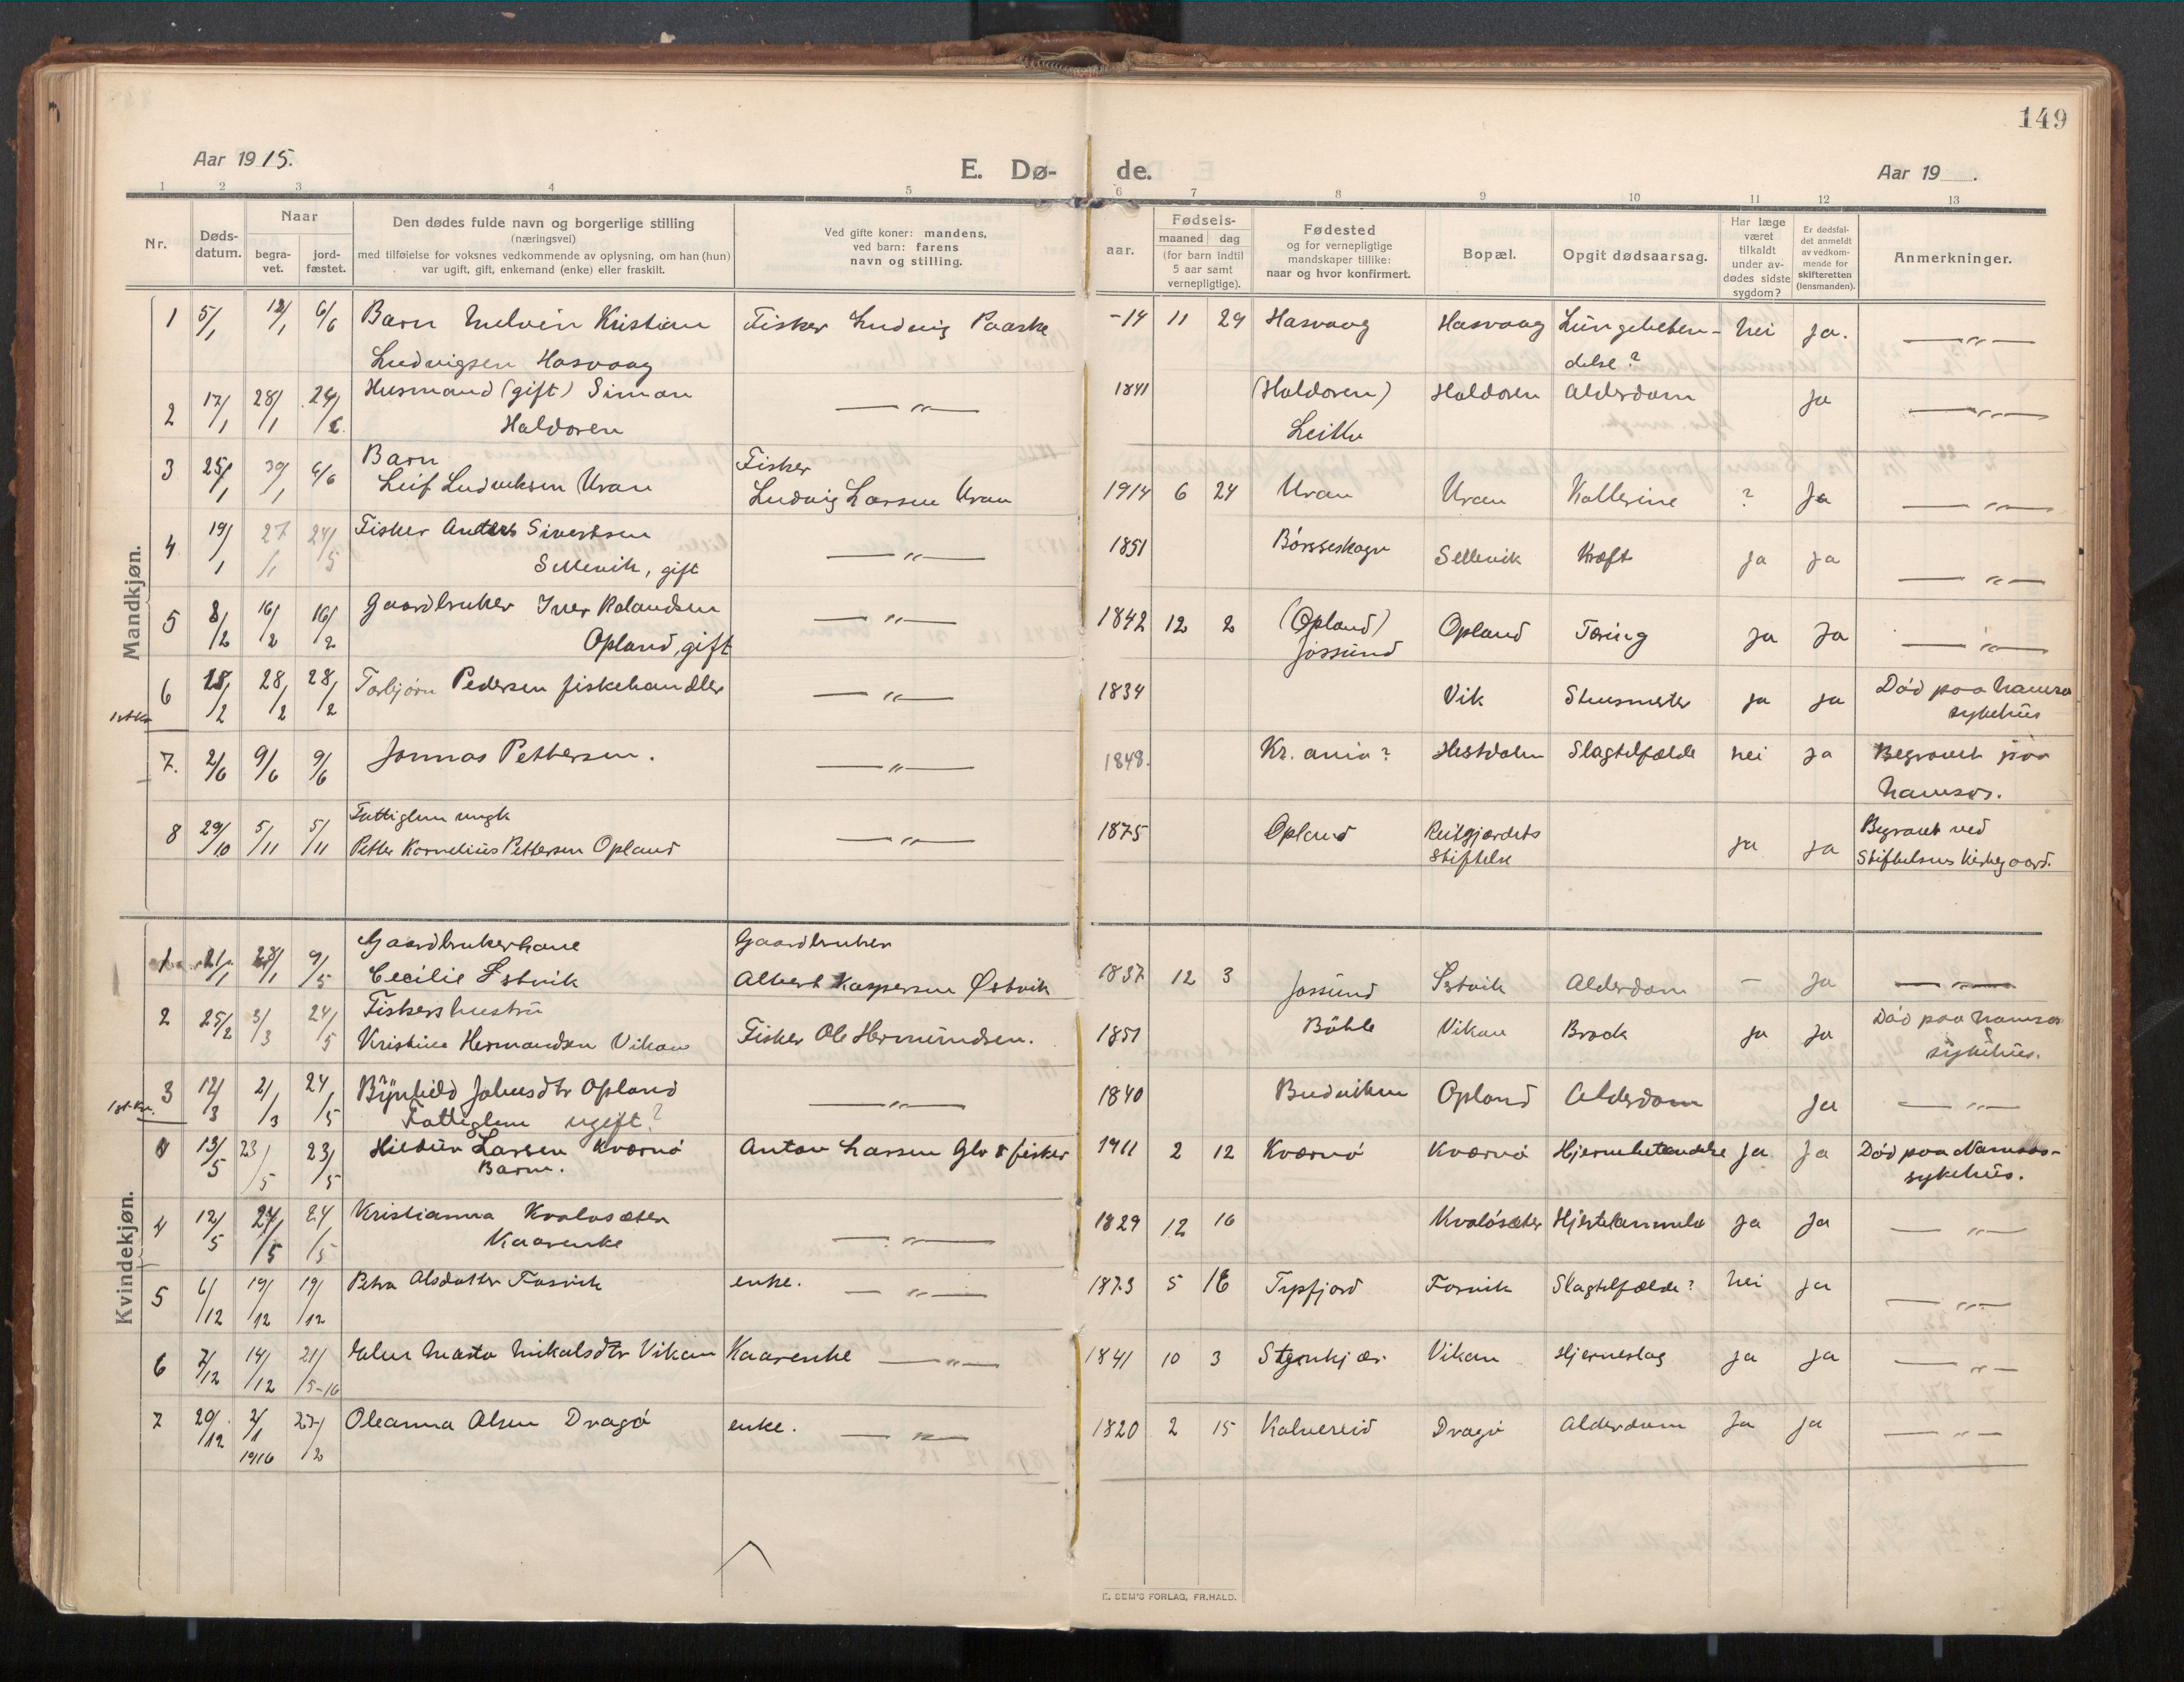 149
Aar 1915.
E. Dø- de.
Aar 19 .
1 2 3 4 5 6 7 8 9 10 11 12 13
Nr.
Døds-
datum.
Naar
begra-
vet.
jord-
fæstet.
Den dødes fulde navn og borgerlige stilling
(næringsvei)
med tilføielse for voksnes vedkommende av oplysning, om han (hun)
var ugift, gift, enkemand (enke) eller fraskilt.
Ved gifte koner: mandens,
ved barn: farens
navn og stilling.
aar.
Fødsels-
maaned dag
(for barn indtil
5 aar samt
vernepligtige).
Fødested
og for vernepligtige
mandskaper tillike:
naar og hvor konfirmert.
Bopæl.
Opgit dødsaarsag.
Har læge
været
tilkaldt
under av-
dødes sidste
sygdom?
Er dødsfal-
det anmeldt
av vedkom-
mende for
skifteretten
(lensmanden).
Anmerkninger.
Mandkjøn.
1 5/1 12/1 6/6 Barn Melvin Kristian Fisker Ludvig Paaske -14 11 29 Hasvaag Hasvaag Lungebeten- nei ja. — " —
Ludvigsen Hasvaag delse?
2 17/1 28/1 24/6 Husmand (gift) Simon — " — 1841 (Haldoren) Haldoren Alderdom ja — " —
Haldoren Leitlu
3 25/1 30/1 6/6 Barn Fisker
Leif Ludviksen Uran Ludvig Larsen Uran 1914 6 24 Uran Uran Kollerine ? Ja — " —
4 19/1 27/1 24/5 Fisker Anders Sivertsen — " — 1851 Børsseskogn Sellevik Kræft ja ja — " —
Sellevik, gift
5 8/2 16/2 16/2 Gaardbruker Iver Rolandsen — " — 1842 12 2 (Opland) Opland Tæring ja ja — " —
Opland, gift Jøssund
6 18/2 28/2 28/2 Torbjørn Pedersen fiskehandler — " — 1834 Vik ja ja Død paa Namsos
sykehus
7. 2/6 9/6 9/6 Jonnas Pettersen. — " — 1848. Kr.ania? Hestdalen Slagtilfælde nei ja Begravet paa
Namsos.
8 29/10 5/11 5/11 Fattiglem ungk
Petter Kornelius Pettersen Opland — " — 1875 Opland Reitgjærdets ja ja Begravet ved
Stiftelse Stiftelsens kirkegaard.
Kvindekjøn.
1 21/1 28/1 9/5 Gaardbrukerkone Gaardbruker
Cecilie Østvik Albert Kaspersen Østvik 1837 12 3 Jøssund Østvik Alderdom — ja — " —
2 25/2 3/3 24/5 Fiskershustru
Kristine Hermandsen Vikan Fisker Ole Hermundsen. 1851 Bøhle Vikan Brock ja ja Død paa Namsos
sykehus.
3 12/3 21/3 24/5 Bynhild Johnsdtr Opland — " — 1840 Budviken Opland Alderdom ja — " —
Fattiglem ugift?
13/5 23/5 23/5 Hildur Larsen Kværnø Anton Larsen Gbr & fisker 1911 2 12 Kværnø Kværnø Hjernebetændelse ja ja Død paa Namsos-
Barn. sykehus.
4 12/5 24/5 24/5 Kristianna Kvaløsæter — " — 1829 12 16 Kvaløsæter Hjertelammelse ja ja — " —
Kaarenke
5 6/12 19/12 19/12 Petra Olsdatter Fosvik enke. — " — 1873 5 18 Typfjord Forvik Slagtilfælde? nei ja — " —
6 7/12 14/12 21/5-16 Marta Mikalsdtr Vikan Kaarenke — " — 1841 10 3 Stenkjær Vikan Hjerneslag ja ja — " —
7 20/12 2/1 1916 27/2 Oleanna Olsen Dragø enke. — " — 1820 2 15 Kalvereid Dragø Alderdom Ja ja — " —
E. SEM'S FORLAG, FR.HALD.